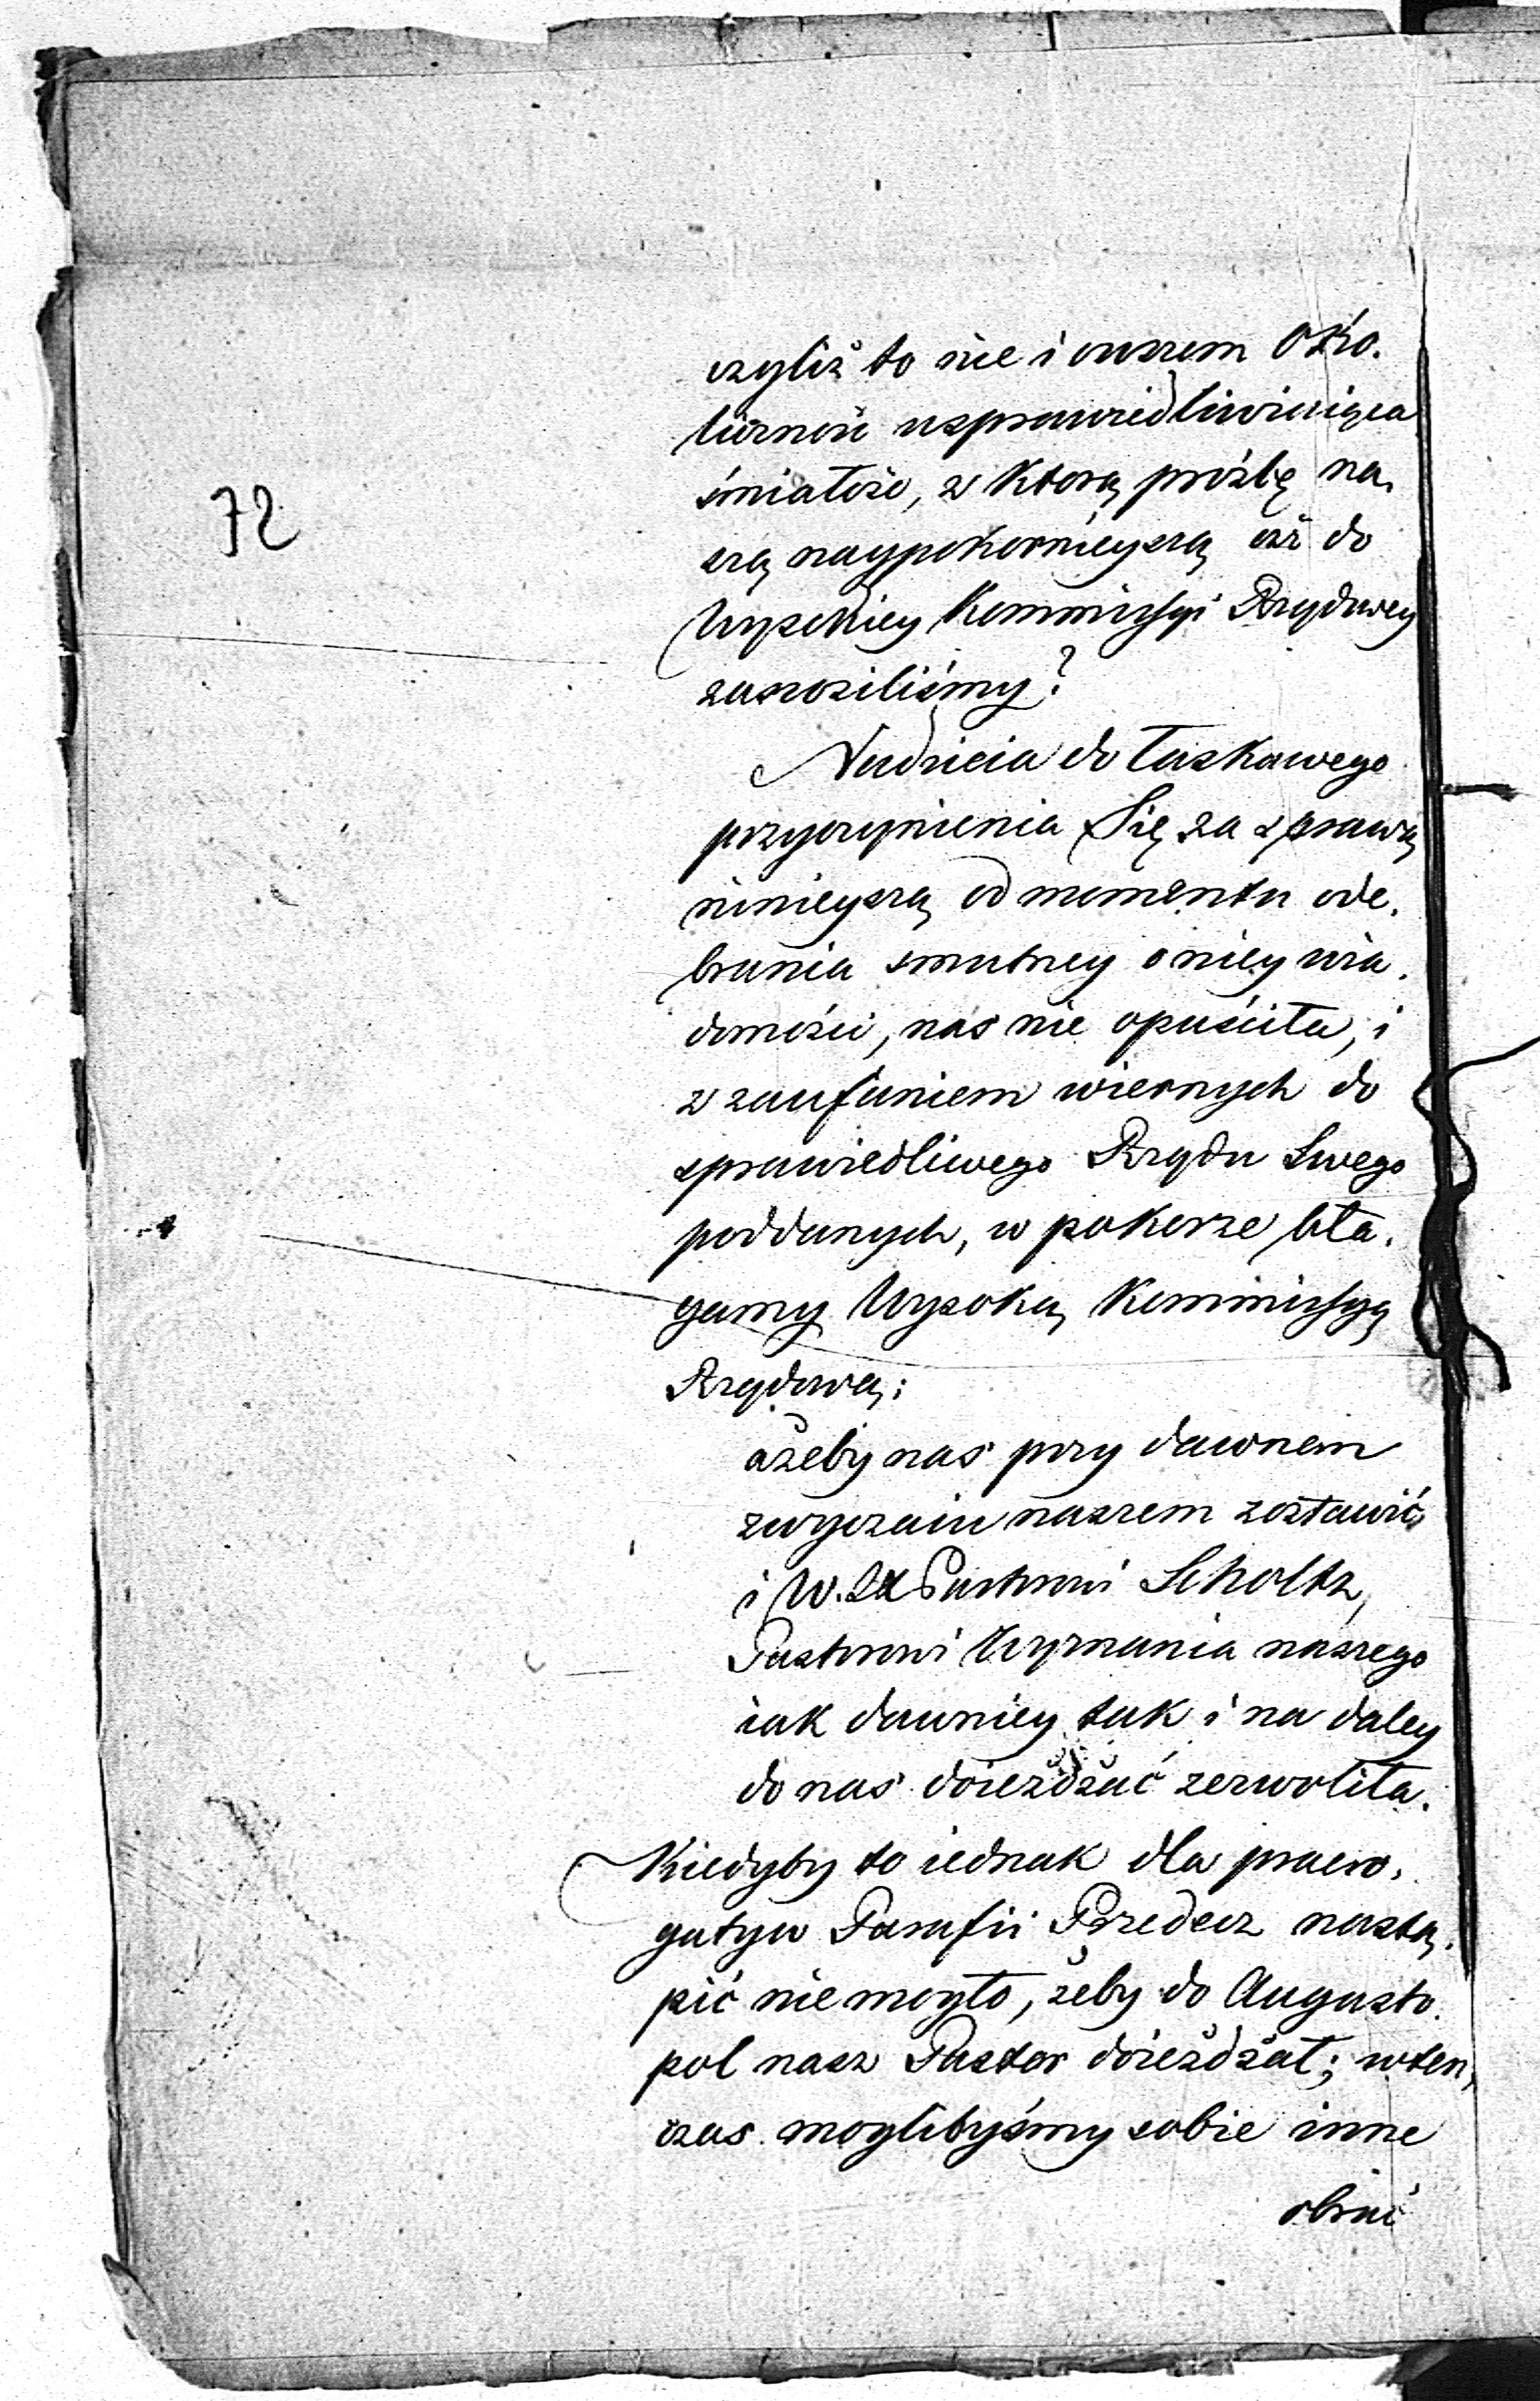 72
czyliż to nie i owszem Oko.
liczność usprawiedliwiaiąca
śmiałość, z Którą prózbę na.
szą naypokornieyszą aż do
Wysokiey Kommissyi Rządowey
zanosiliśmy?
Nadzieia do łaskawego
przyczynienia Się za sprawą
ninieyszą od momentu ode.
brania smutney o niey wia.
domości, nas nie opuściła, i
z zaufaniem wiernych do
sprawiedliwego Rządu Swego
poddanych, w pokorze bła.
gamy Wysoką Kommissyą
Rządową:
ażeby nas przy dawnem
zwyczaiu naszem zostawić,
i W. Pastorowi Scholtz,
Pastorowi Wyznania naszego
iak dawniey tak i na daley
do nas doieżdżać zezwoliła.
Kiedyby to iednak dla praero.
gatyw Parafii Przedecz nastą.
pić nie mogło, żeby do Augusto.
pol nasz Pastor doieżdżał; wten.
czas moglibyśmy sobie inne
obrać